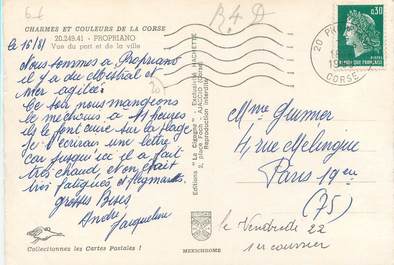 6-L
B.4 D
CHARMES ET COULEURS DE LA CORSE
20.249.41 - PROPRIANO
Vue du port et de la ville
le 16/81
Nous sommes à Propriano
il y a du Mistral et
mer agitée
Ce soir nous mangeons
le méchouis à 11 heures
ils le font cuire sur la plage
Je t'écrirais une lettre
car jusqu'ici il a fait
trôi chaud, et on était
trôi fatigués et flegmards.
grosses Bises
Andre
Jacqueline
20
Editions "La Cigogne" - Exclusivité HACHETTE
2, place Foch - AJACCIO (Corse)
Reproduction interdite
0,30
20 PR
CORSE
Mme Gumier
4, rue Mélingue
Paris 19em
(75)
le Vendredi 22
1er courrier
Collectionnez les Cartes Postales !
MEXICHROME